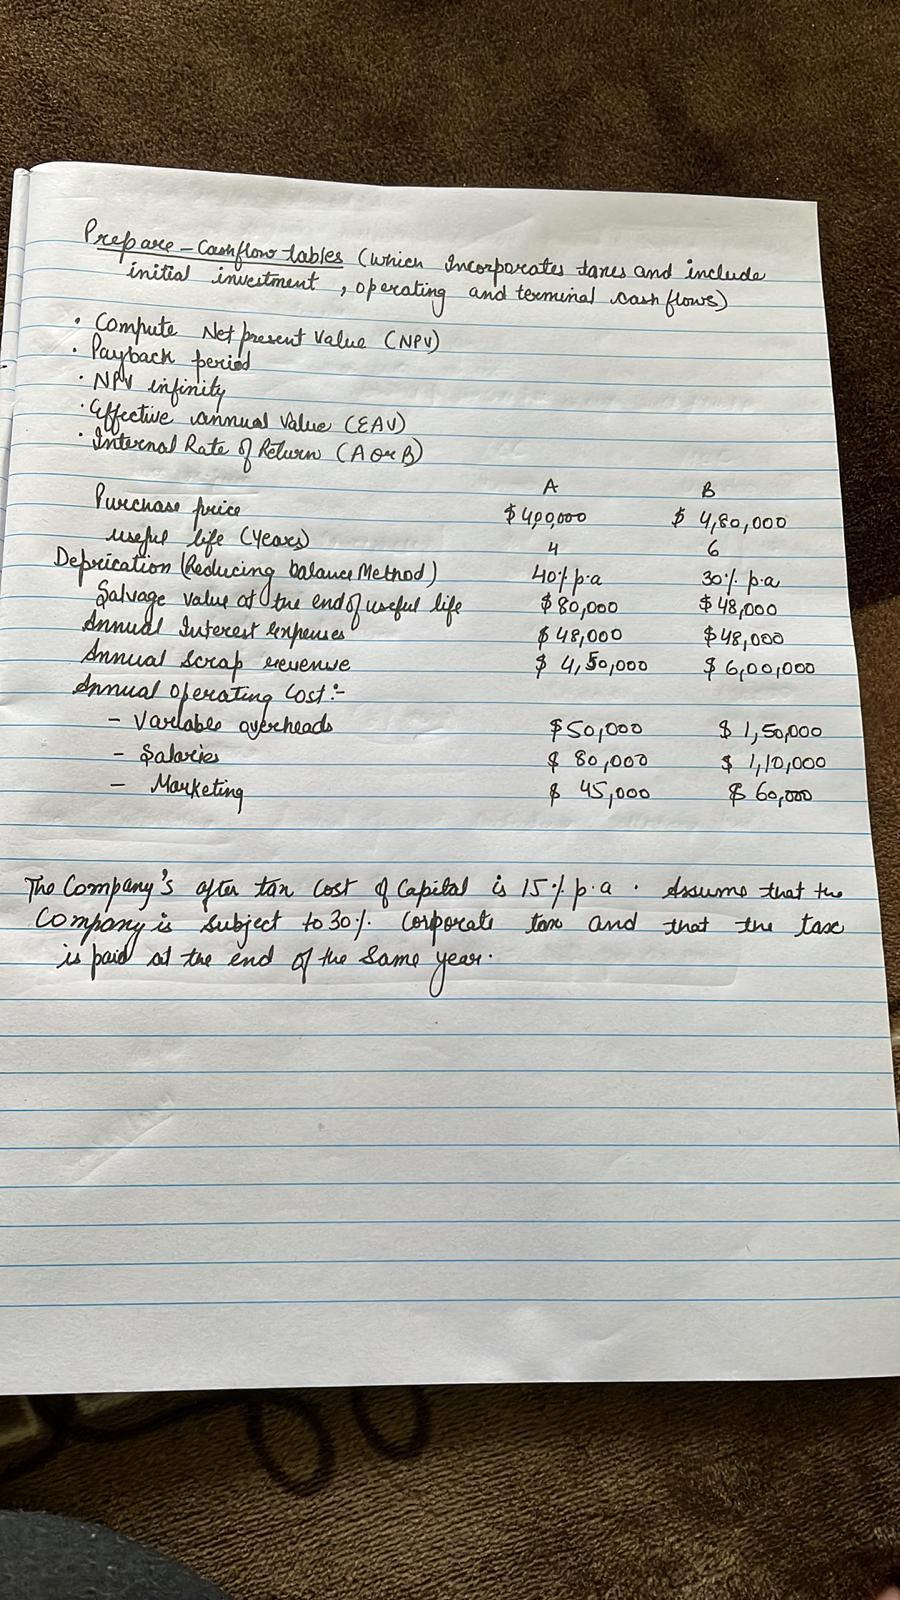 Prepare - Cashflow tables (which Incorporates taxes and include
initial investment, operating and terminal cash flows)
• Compute Net present Value (NPV)
• Payback period
• NPV infinity
• Effective annual Value (EAV)
• Internal Rate of Return (A or B)
A B
Purchase price $ 400,000 $ 4,80,000
useful life (Years) 4 6
Deprication (Reducing balance Method) 40% p.a 30% p.a
Salvage value at the end of useful life $ 80,000 $ 48,000
Annual Interest expenses $ 48,000 $ 48,000
Annual Scrap revenue $ 4,50,000 $ 6,00,000
Annual Operating Cost :-
- Variable overheads $ 50,000 $ 1,50,000
- Salaries $ 80,000 $ 1,10,000
- Marketing $ 45,000 $ 60,000
The Company's after tax Cost of Capital is 15% p.a. Assume that the
Company is subject to 30% Corporate tax and that the tax
is paid at the end of the Same year.